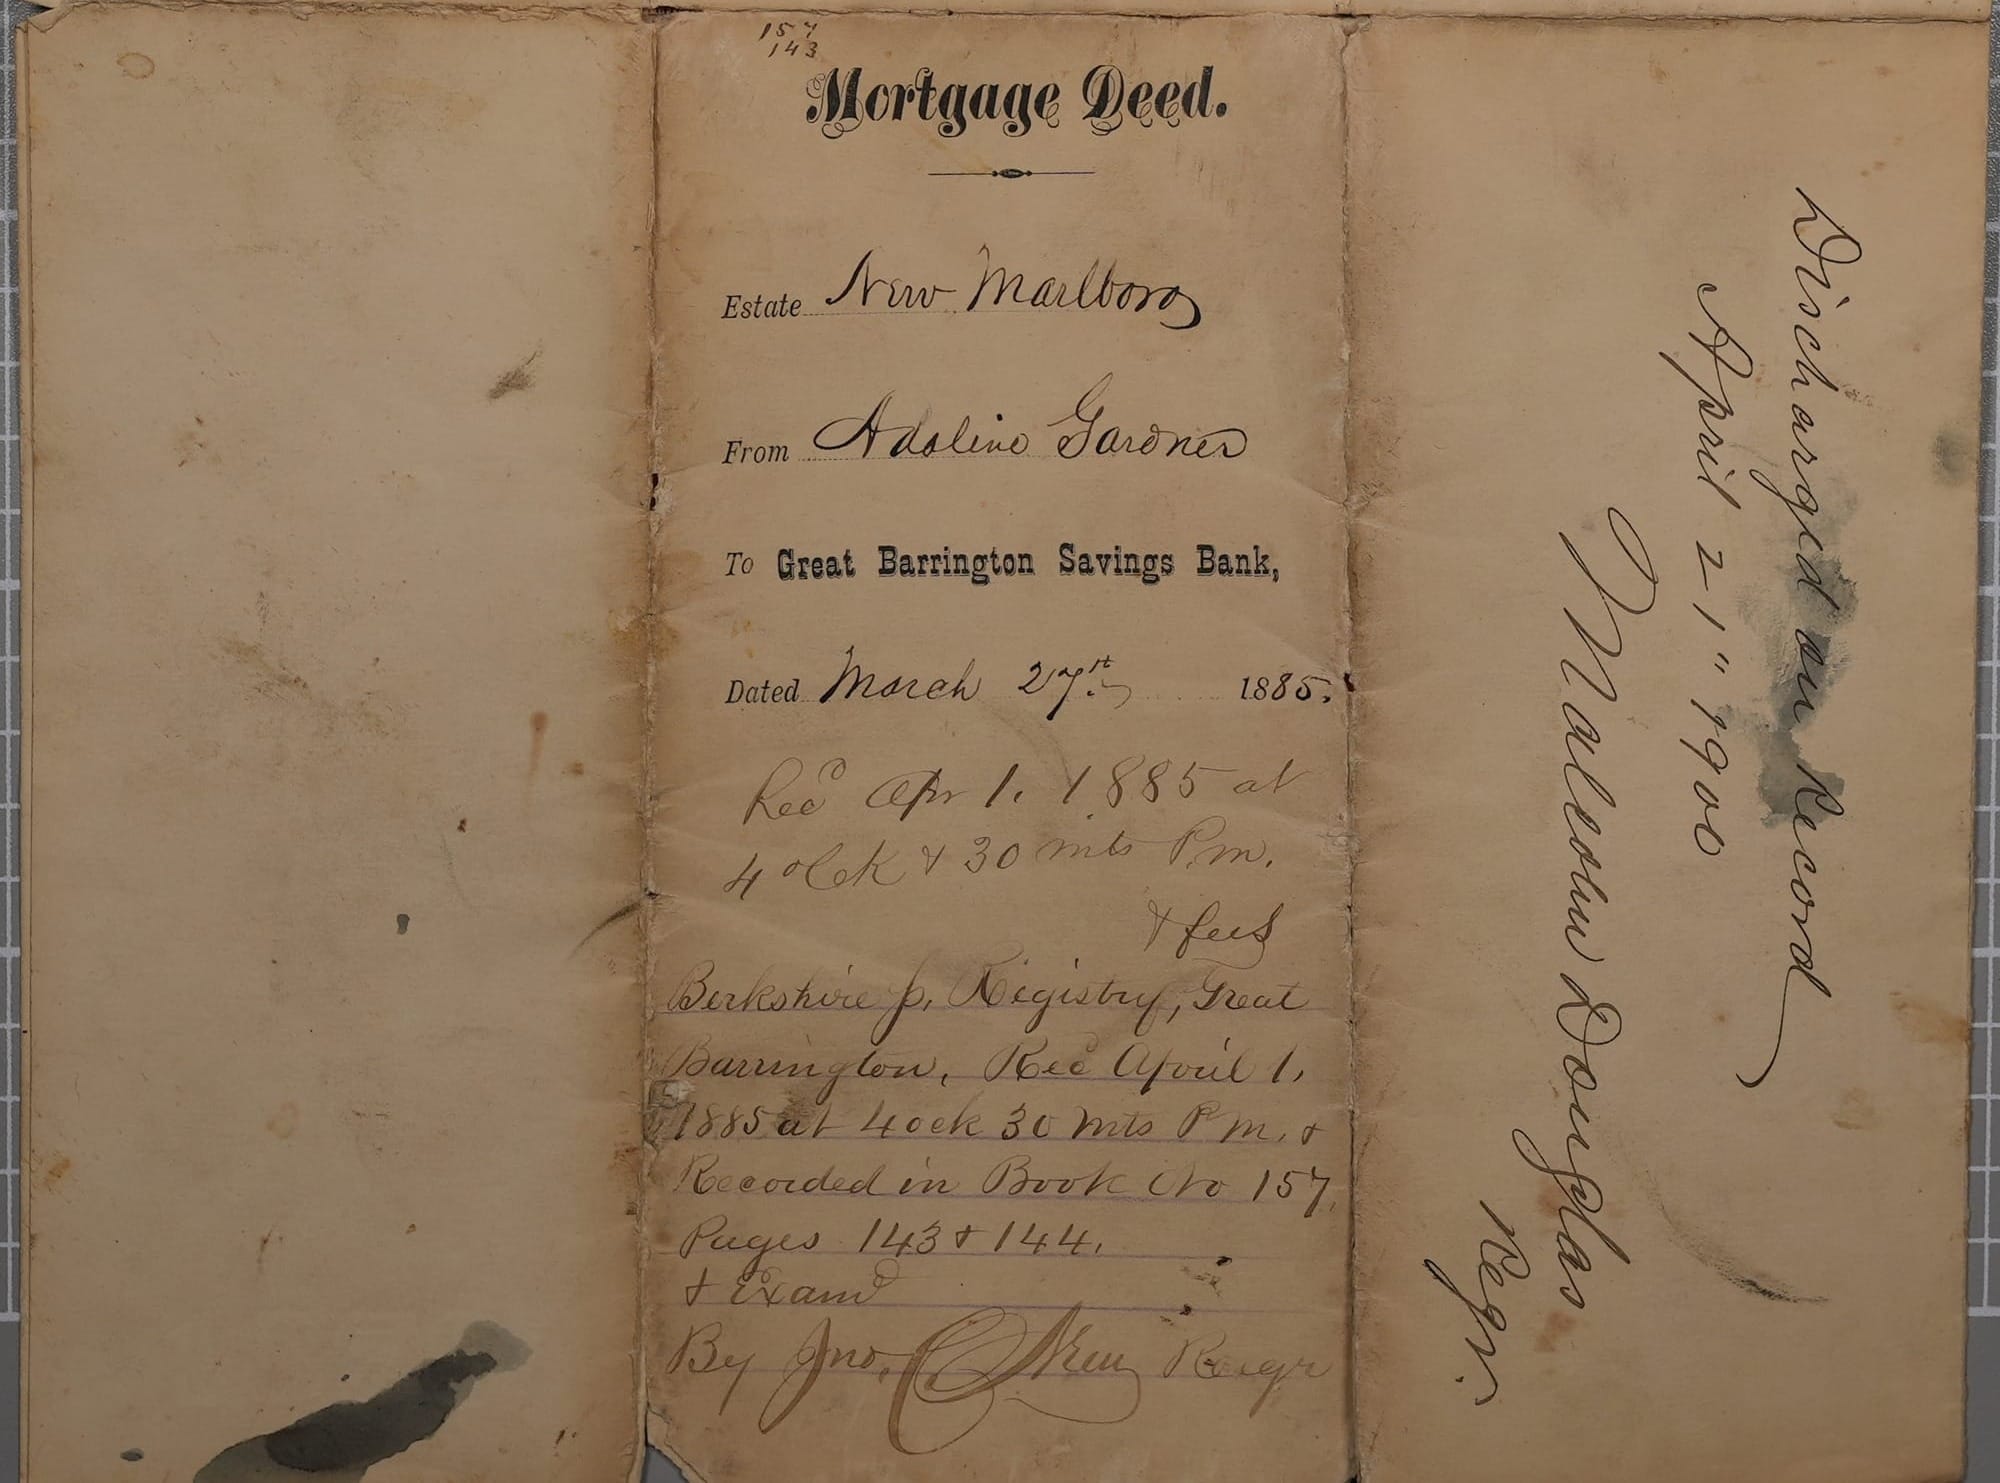 157
143
Mortgage Deed.
Estate New Marlboro
From Adaline Gardner
To Great Barrington Savings Bank,
Dated March 27st 1885.
Recd Apr 1. 1885 at
4 oclk & 30 mts P.m.
& fees
Berkshire So. Registry, Great
Barrington, Recd April 1,
1885 at 4 ock 30 mts P m. &
Recorded in Book No 157,
Pages 143 & 144.
& Examd
By Jno. C. Regr
Discharged on Record
April 21" 1900
Malcolm Douglas
Regr.